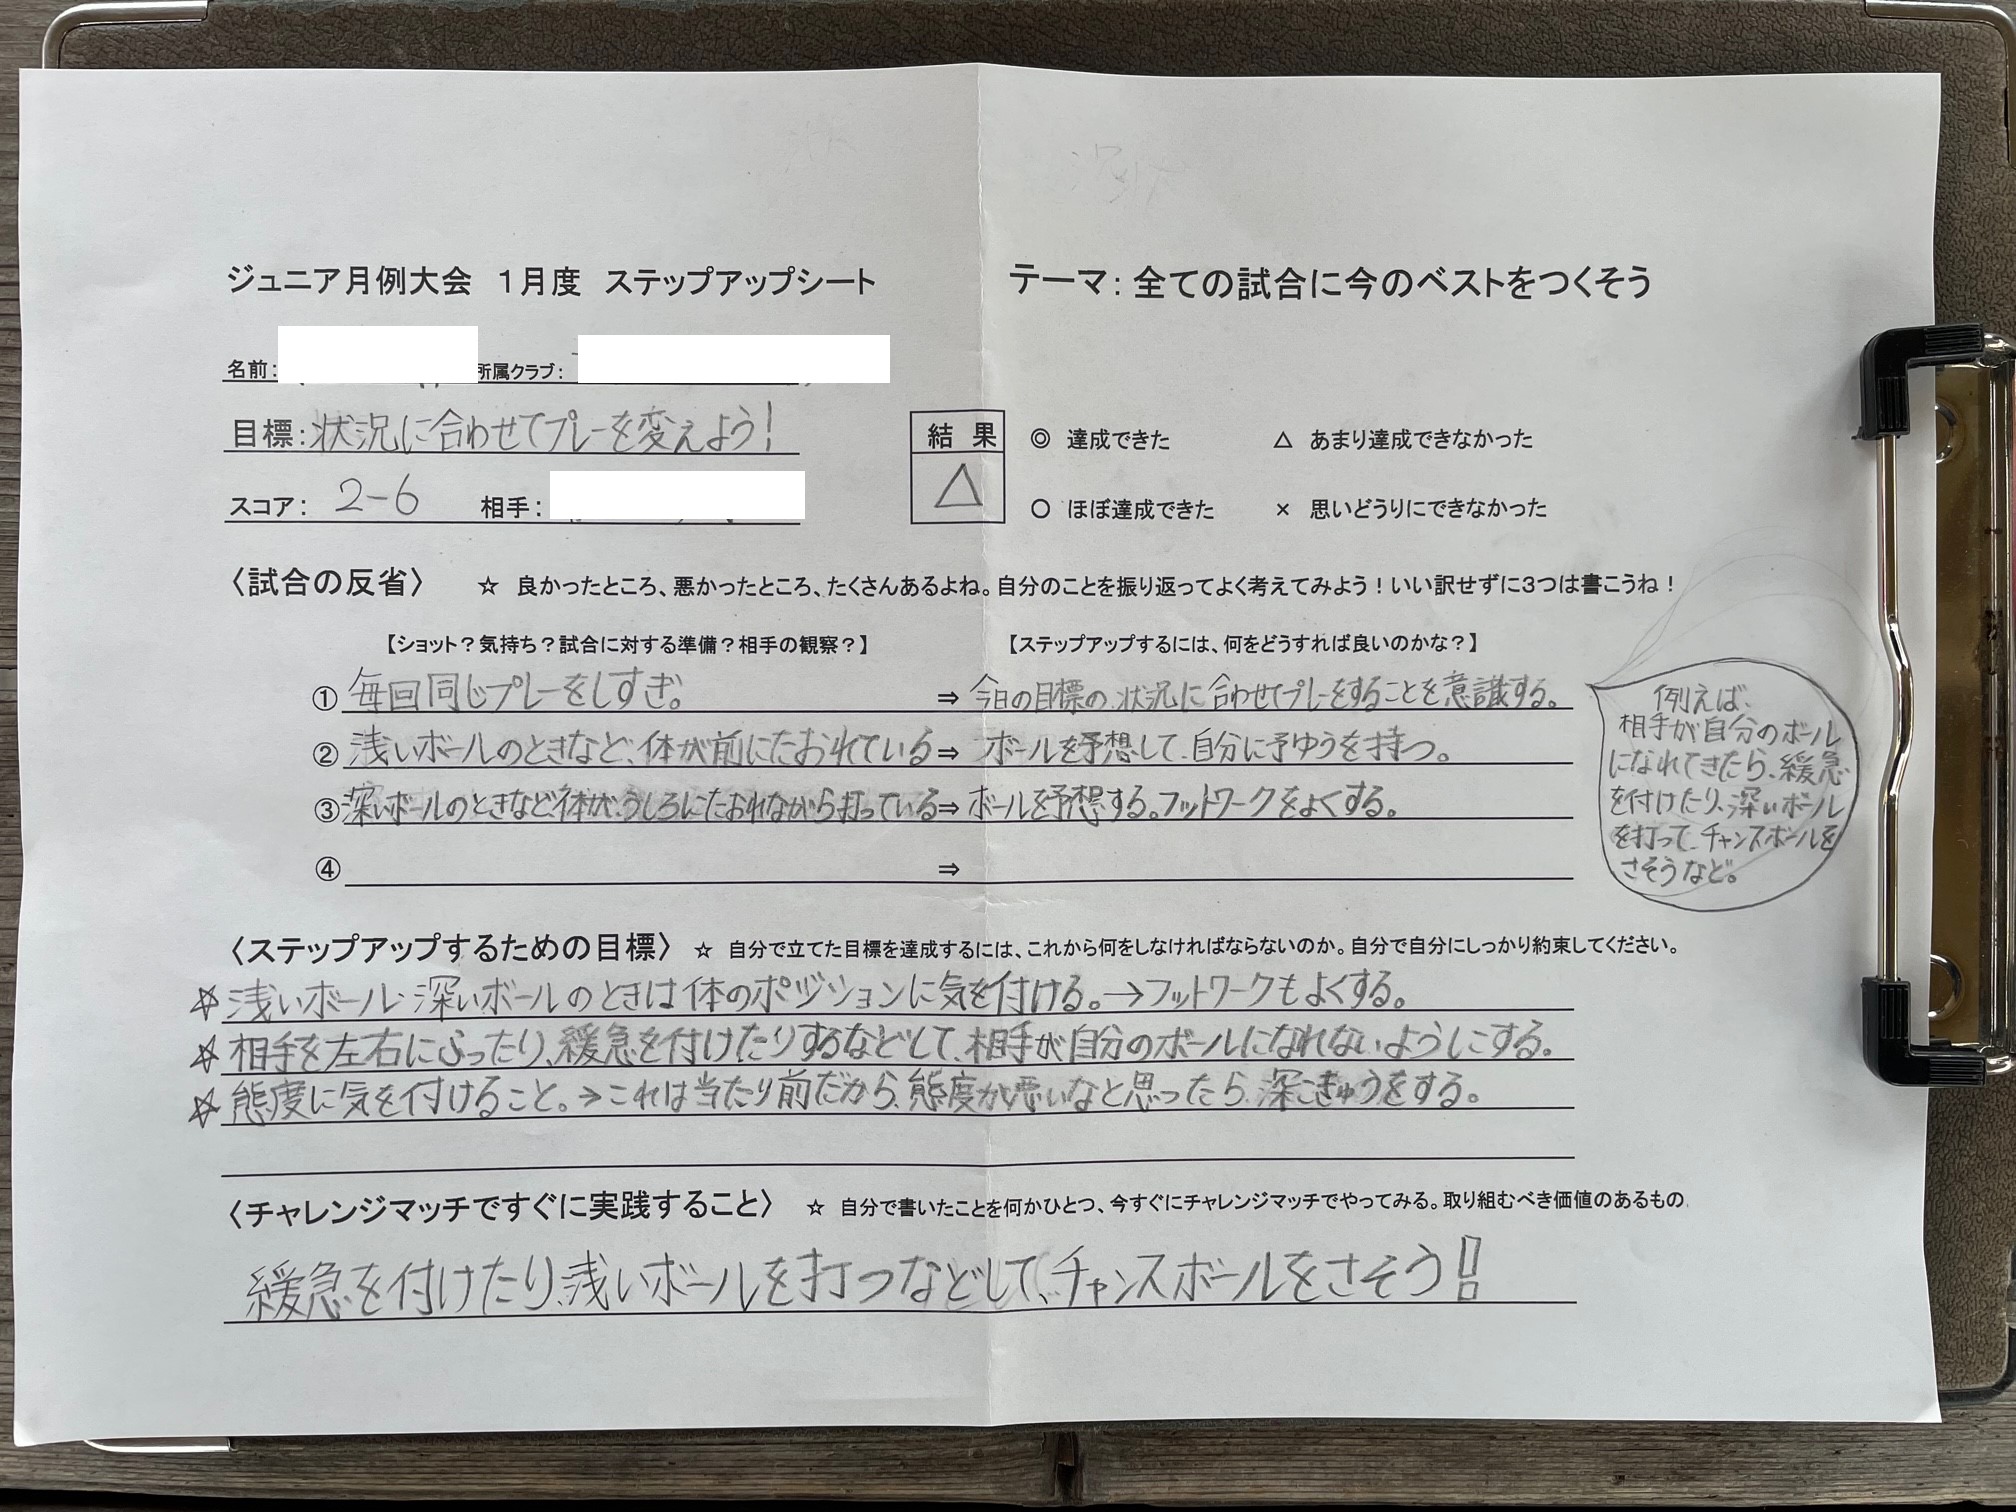 ジュニア月例大会　1月度　ステップアップシート　テーマ：全ての試合に今のベストをつくそう
名前：　所属クラブ：
目標：状況に合わせてプレーを変えよう！
結 果　◎ 達成できた　△ あまり達成できなかった
スコア： 2-6　相手：
△　○ ほぼ達成できた　× 思いどうりにできなかった
〈試合の反省〉　☆ 良かったところ、悪かったところ、たくさんあるよね。自分のことを振り返ってよく考えてみよう！いい訳せずに3つは書こうね！
【ショット？気持ち？試合に対する準備？相手の観察？】　【ステップアップするには、何をどうすれば良いのかな？】
① 毎回同じプレーをしすぎ。　⇒ 今日の目標の、状況に合わせてプレーをすることを意識する。
② 浅いボールのときなど、体が前にたおれている ⇒ ボールを予想して、自分に予ゆうを持つ。
③ 深いボールのときなど、体が、うしろにたおれながら打っている ⇒ ボールを予想する。フットワークをよくする。
④　⇒
例えば、
相手が自分のボール
になれてきたら、緩急
を付けたり、深いボール
を打って、チャンスボールを
さそうなど。
〈ステップアップするための目標〉　☆ 自分で立てた目標を達成するには、これから何をしなければならないのか。自分で自分にしっかり約束してください。
☆浅いボール・深いボールのときは体のポジションに気を付ける。→フットワークもよくする。
☆相手を左右にふったり、緩急を付けたりするなどして、相手が自分のボールになれないようにする。
☆態度に気を付けること。→これは当たり前だから、態度が悪いなと思ったら、深こきゅうをする。
〈チャレンジマッチですぐに実践すること〉　☆ 自分で書いたことを何かひとつ、今すぐにチャレンジマッチでやってみる。取り組むべき価値のあるもの
緩急を付けたり、浅いボールを打つなどして、チャンスボールをさそう！